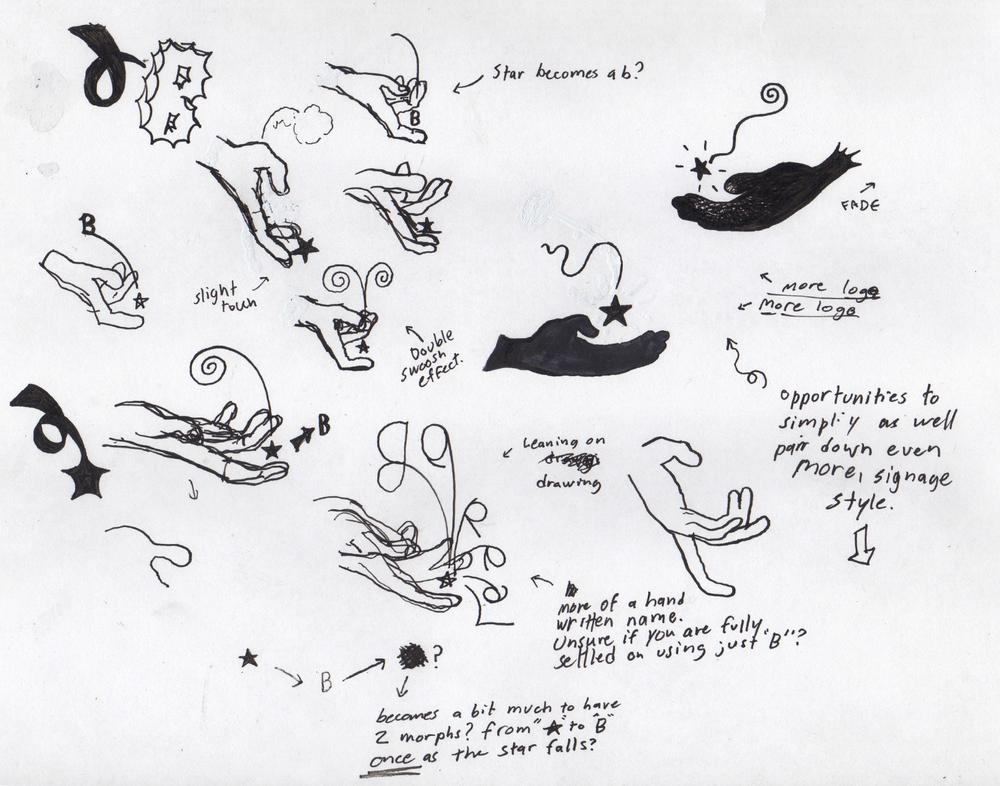 B
B
Star becomes a b?
B
FADE
B
slight
touch
more logo
More logo
Double
swoosh
effect.
opportunities to
simplify as well
pair down even
more, signage
style.
B
Leaning on
drawing
more of a hand
written name.
Unsure if you are fully
settled on using just "B"?
B
?
becomes a bit much to have
2 morphs? from "★" to "B"
once as the star falls?